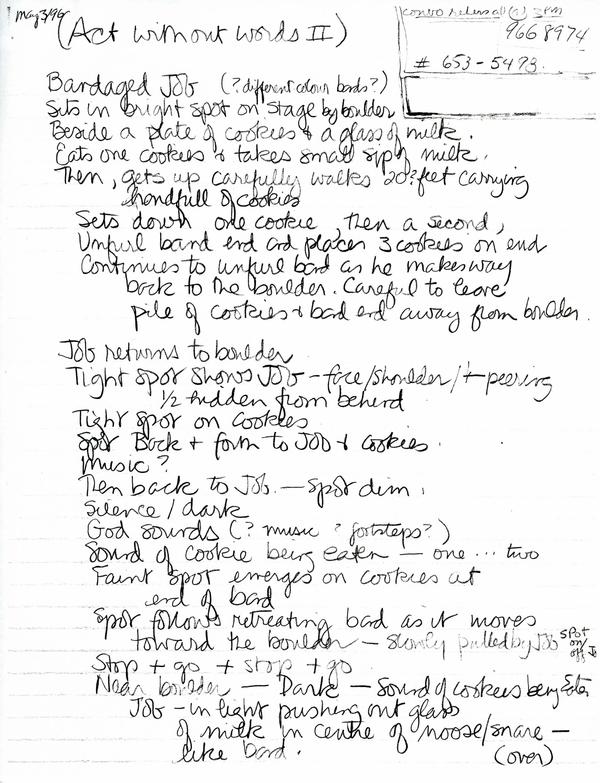 May 3/96
convo rehersal (2) 3pm
966 8974
# 653-5473.
(Act without words II)
Bandaged Job (? different colour bands?)
Sits in bright spot on stage by boulder
Beside a plate of cookies + a glass of milk.
Eats one cookies + takes small sip of milk.
Then, gets up carefully walks 20? feet carrying
handfull of cookies
Sets down one cookie, then a second,
Unfurl band end and places 3 cookies on end
Continues to unfurl band as he makes way
back to the boulder. Careful to leave
pile of cookies + band end away from boulder.
Job returns to boulder
Tight spot shows Job - face/shoulder/ + peering
1/2 hidden from behind
Tight spot on cookies
Spot Back + forth to Job + cookies.
Music?
Then back to Job. — spot dim.
Silence / dark
God sounds (? music ? footsteps?)
Sound of cookie being eaten — one ... two
Faint spot emerges on cookies at
end of band
Spot follows retreating band as it moves
toward the boulder — slowly pulled by Job
spot on/off Job
Stop + go + stop + go
Near boulder — Dark — Sound of cookies being Eaten
Job - in light pushing out glass
of milk in centre of noose/snare —
like band.
(over)